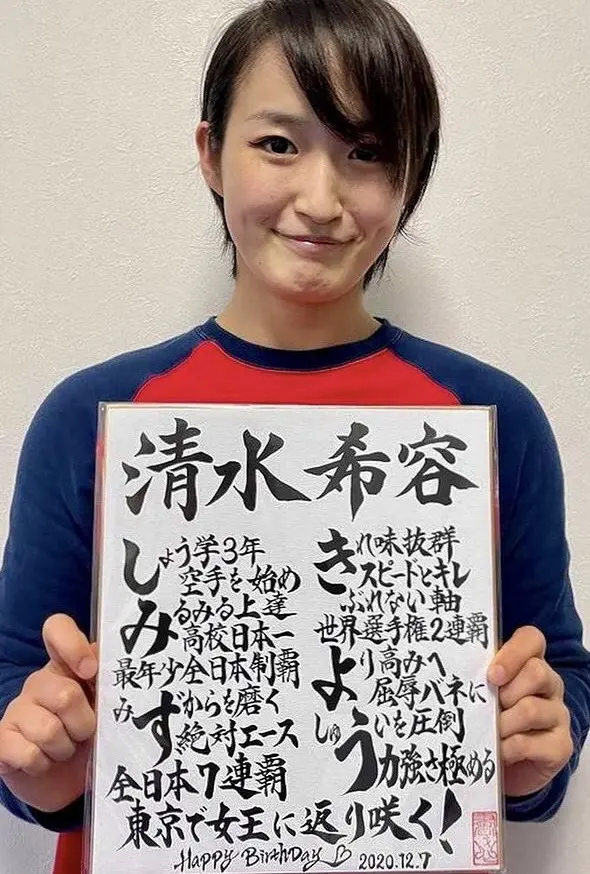 清水希容
しょう学3年
空手を始め
みるみる上達
高校日本一
最年少全日本制覇
みずからを磨く
絶対エース
全日本7連覇
きれ味抜群
スピードとキレ
ぶれない軸
世界選手権2連覇
より高みへ
屈辱バネに
しゅういを圧倒
力強さ極める
東京で女王に返り咲く!
HAPPY BIRTHDAY♡ 2020.12.7